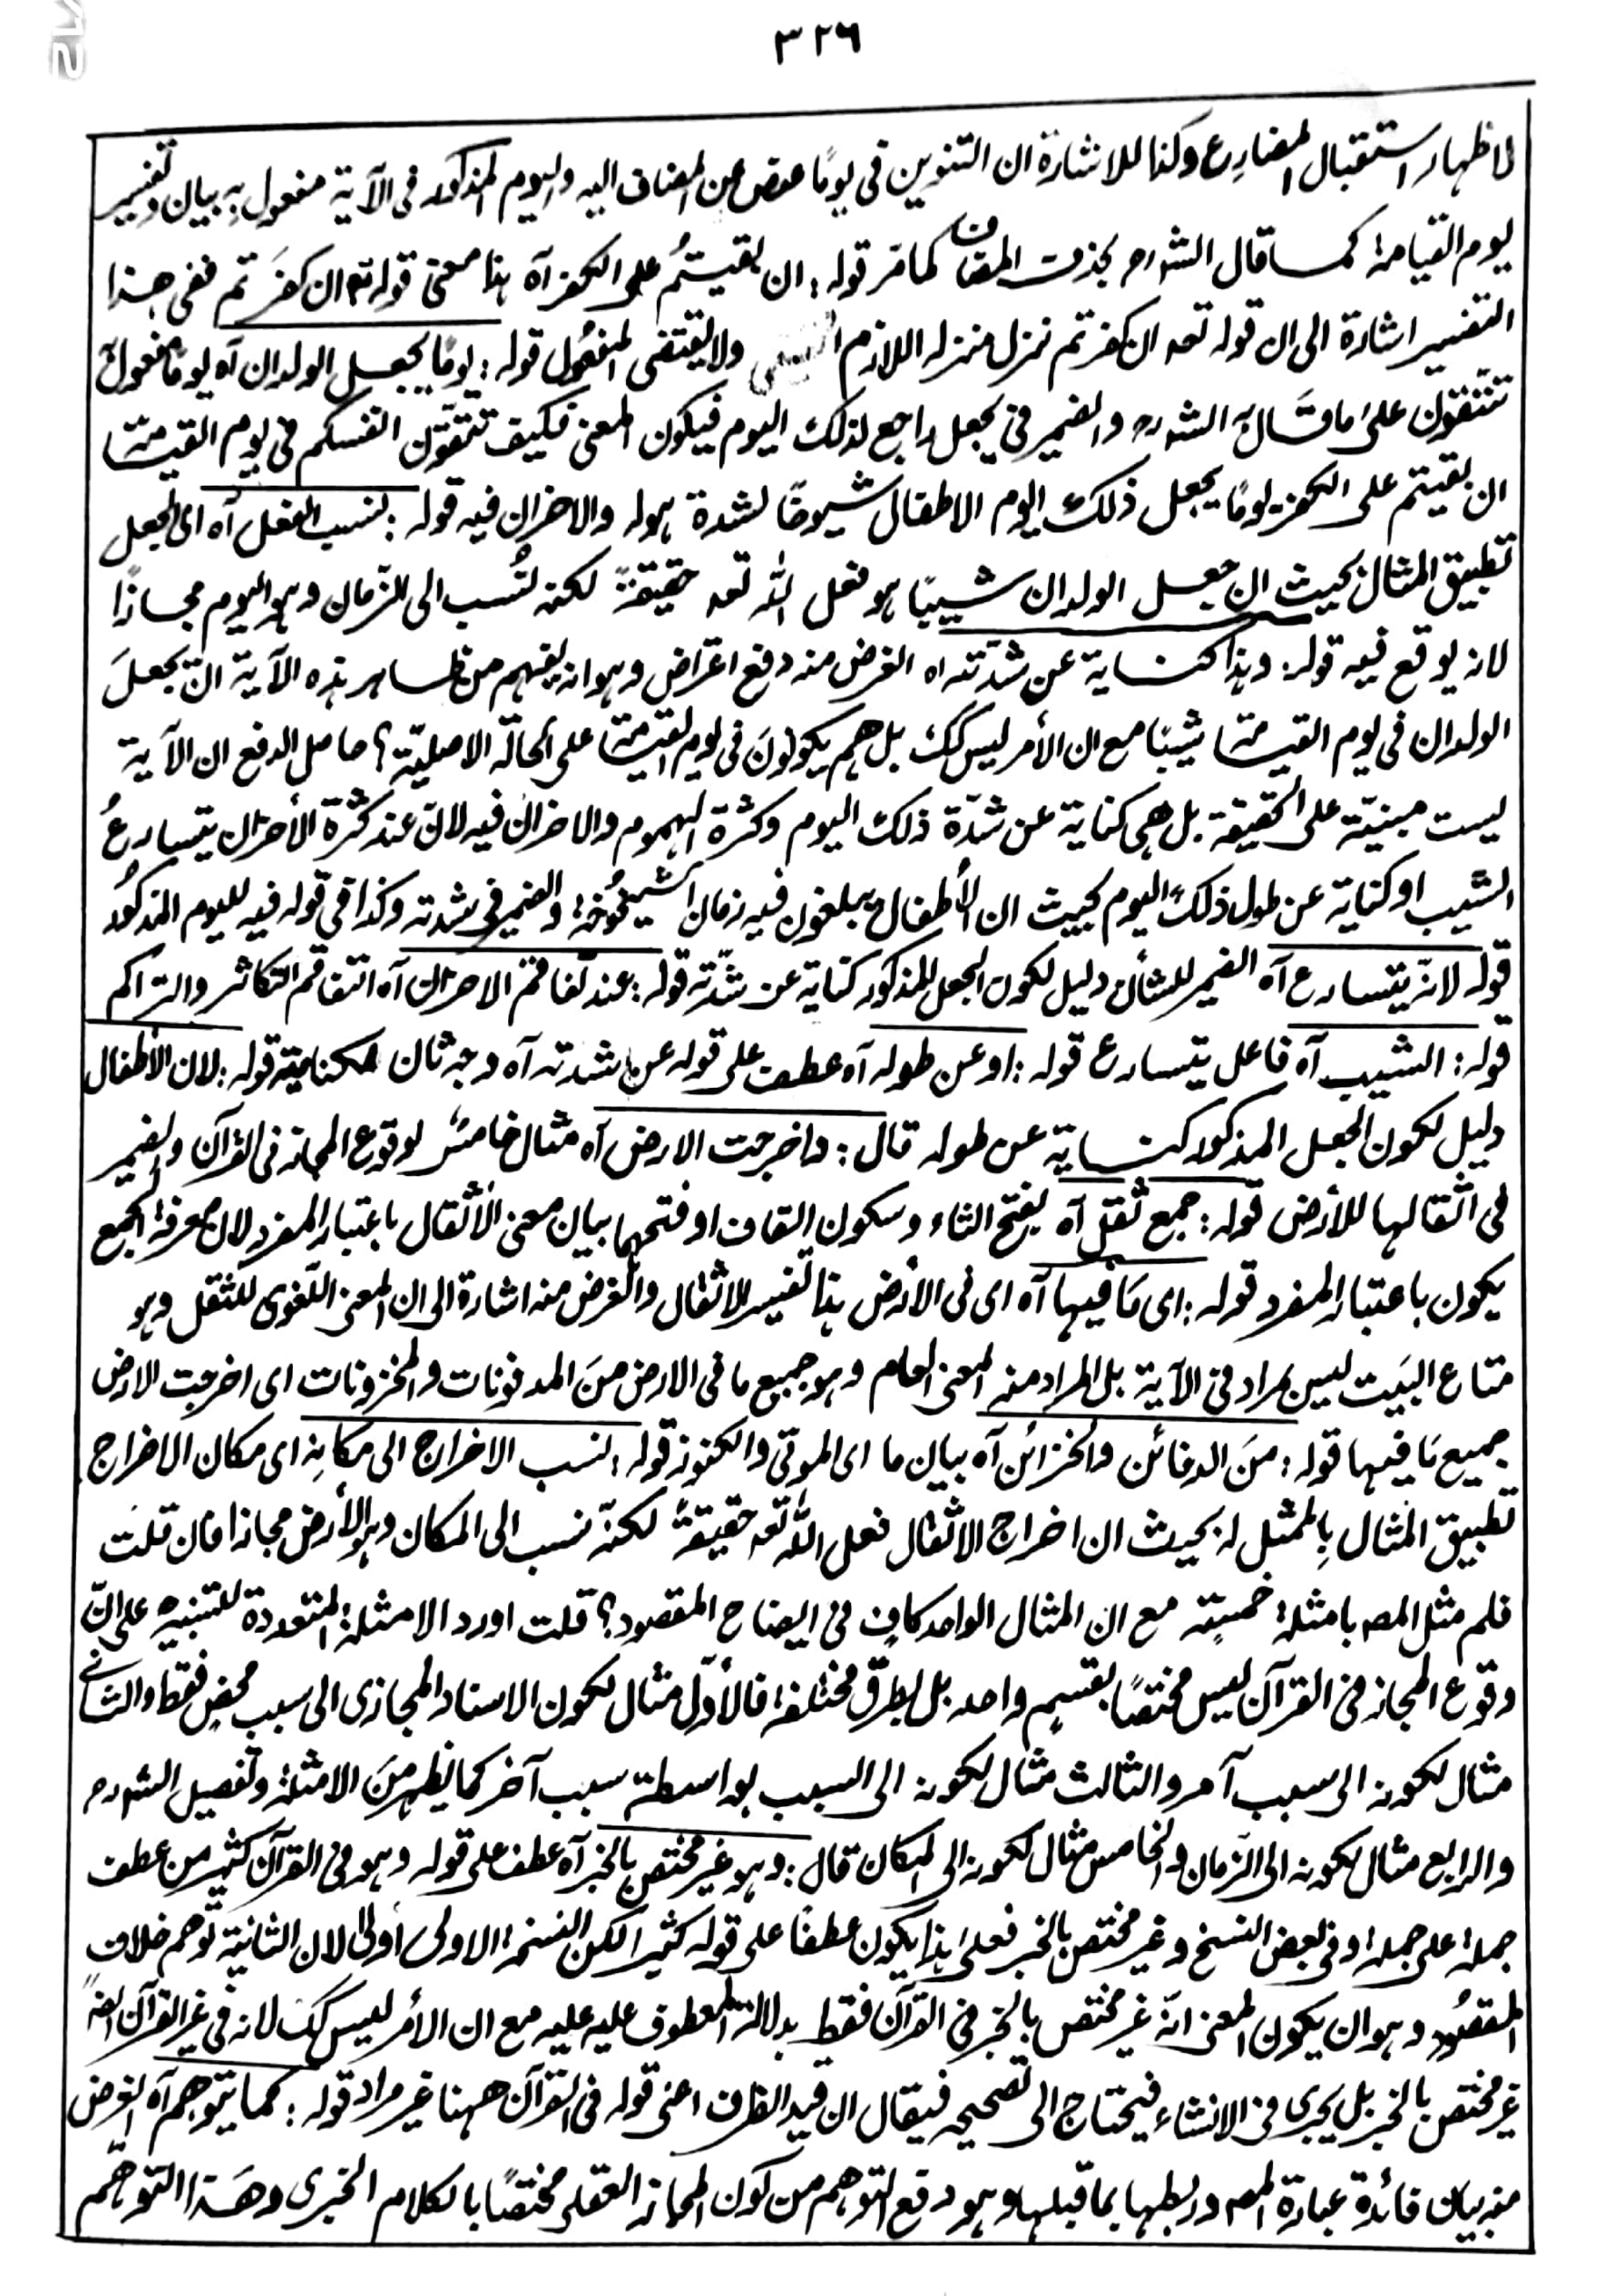 ٣٢٦
لاظهار استقبال المضارع وكذا للاشارة ان التنوين فى يومًا عوض عن المضاف اليه واليوم المذكور فى الآية مفعول به بيان وتفسير
ليوم القيامة كما قال الشورح بحذف المضاف كما مر قوله: ان بقيتُم على الكفر آه هذا معنى قوله تع ان كفرتم ففى هذا
التفسير اشارة الى ان قوله تعه ان كفرتم نزل منزله اللازم ولا يقتضى المفعُول قوله: يومًا يجعل الولدان آه يومًا مفعول
تتّقون علىٰ ما قال الشورح والضمير فى يجعل راجع لذلك اليوم فيكون المعنى فكيف تتّقون انفسكم فى يوم القيمة
ان بقيتم على الكفر يومًا يجعل ذلك اليوم الاطفال شيوخًا لشدة هوله والاحزان فيه قوله: نسب الفعل آه اى الجعل
تطبيق المثال بحيث ان جعل الولدان شيبًا هو فعل الله تعه حقيقةً لكنه نُسب الى الزّمان وهو اليوم مجازًا
لانه يوقع فيه قوله: وهذا كناية عن شدّته اه الغرض منه دفع اعتراض وهو انه يفهم من ظاهر هذه الآية انّ يجعلَ
الولدان فى يوم القيمة شيبًا مع ان الأمر ليس كك بل هم يكونونَ فى يوم القيمة على الحالة الاصليّة؟ حاصل الدفع ان الآية
ليست مبنيّة على الحقيقة بل هى كناية عن شدّة ذلك اليوم وكثرة الهموم والاحزان فيه لانّ عند كثرة الأحزان يتسارعُ
الشّيب او كناية عن طول ذلك اليوم بحيث ان الأطفال يبلغون فيه زمان الشيخُوخة والضمير فى شدته وكذا فى قوله فيه لليوم المذكُور
قوله لانّه يتسارع آه الضمير للشأن دليل لكون الجعل المذكور كناية عن شدّته قوله: عند تفاقم الاحزان آه التفاقم التكاثر والتراكم
قوله: الشيب آه فاعل يتسارع قوله: اوعن طوله آه عطف على قوله عن شدته آه وجه ثان لكناية قوله: لان الأطفال
دليل لكون الجعل المذكور كناية عن طوله قال: واخرجت الارض آه مثال خامسٌ لوقوع المجاز فى القرآن والضمير
فى اثقالها للأرض قوله: جمع ثقل آه بفتح الثاء وسكون القاف او فتحهما بيان معنى الأثقال باعتبار المفرد لان معرفة الجمع
يكون باعتبار المفرد قوله: اى مَا فيها آه اى فى الأرض هذا تفسير للاثقال والغرض منه اشارة الى ان المعنى اللغوى للثقل وهو
متاع البَيت ليس بمراد فى الآية بل المراد منه المعنى العام وهو جميع ما فى الارض منَ المدفونات والمخزونات اى اخرجت الارض
جميع مَا فيها قوله: منَ الدفائن والخزائن آه بيان ما اى الموتى والكنوز قوله: نسب الاخراج الى مكانِه اى مكان الاخراج
تطبيق المثال بالممثل له بحيث ان اخراج الاثقال فعل الله تعه حقيقةً لكنّه نسب الى المكان وهو الأرض مجازا فان قلت
فلم مثل المصه بامثلة خمسة مع ان المثال الواحد كافٍ فى ايضاح المقصود؟ قلت اورد الامثلة المتعددة للتنبيه على انّ
وقوع المجاز فى القرآن ليس مختصًا بقسمٍ واحد بل بطرق مختلفة فالأوّل مثال لكون الاسناد المجازى الى سبب محضٍ فقط والثانے
مثال لكونه الى سبب آمر والثالث مثال لكونه الى السبب بواسطة سبب آخر كما يظهر منَ الامثلة وتفصيل الشورح
والرابع مثال لكونه الى الزمان والخامس مثال لكونه الى المكان قال: وهو غير مختص بالخبر آه عطف على قوله وهو فى القرآن كثير من عطف
جملة على جملة او فى بعض النسخ وغير مختص بالخبر فعلىٰ هذا يكون عطفًا على قوله كثير الكن النسخة الاولى اولىٰ لان الثانية توهم خلاف
المقصُود وهو ان يكون المعنى انّه غير مختص بالخبر فى القرآن فقط بدلالة المعطوف عليه عليه مع ان الأمر ليس كك لانه فى غير القرآن ايضًا
غير مختص بالخبر بل يجرى فى الانشاء فيحتاج الى تصحيحه فيقال ان قيد الظرف اعنى قوله فى القرآن ههنا غير مراد قوله: كما يتوهم آه الغرض
منه بيان فائدة عبارة المصه وربطها بما قبلها وهو دفع التوهم من كون المجاز العقلى مختصًا بالكلام الخبرى وهَذا التوهّم